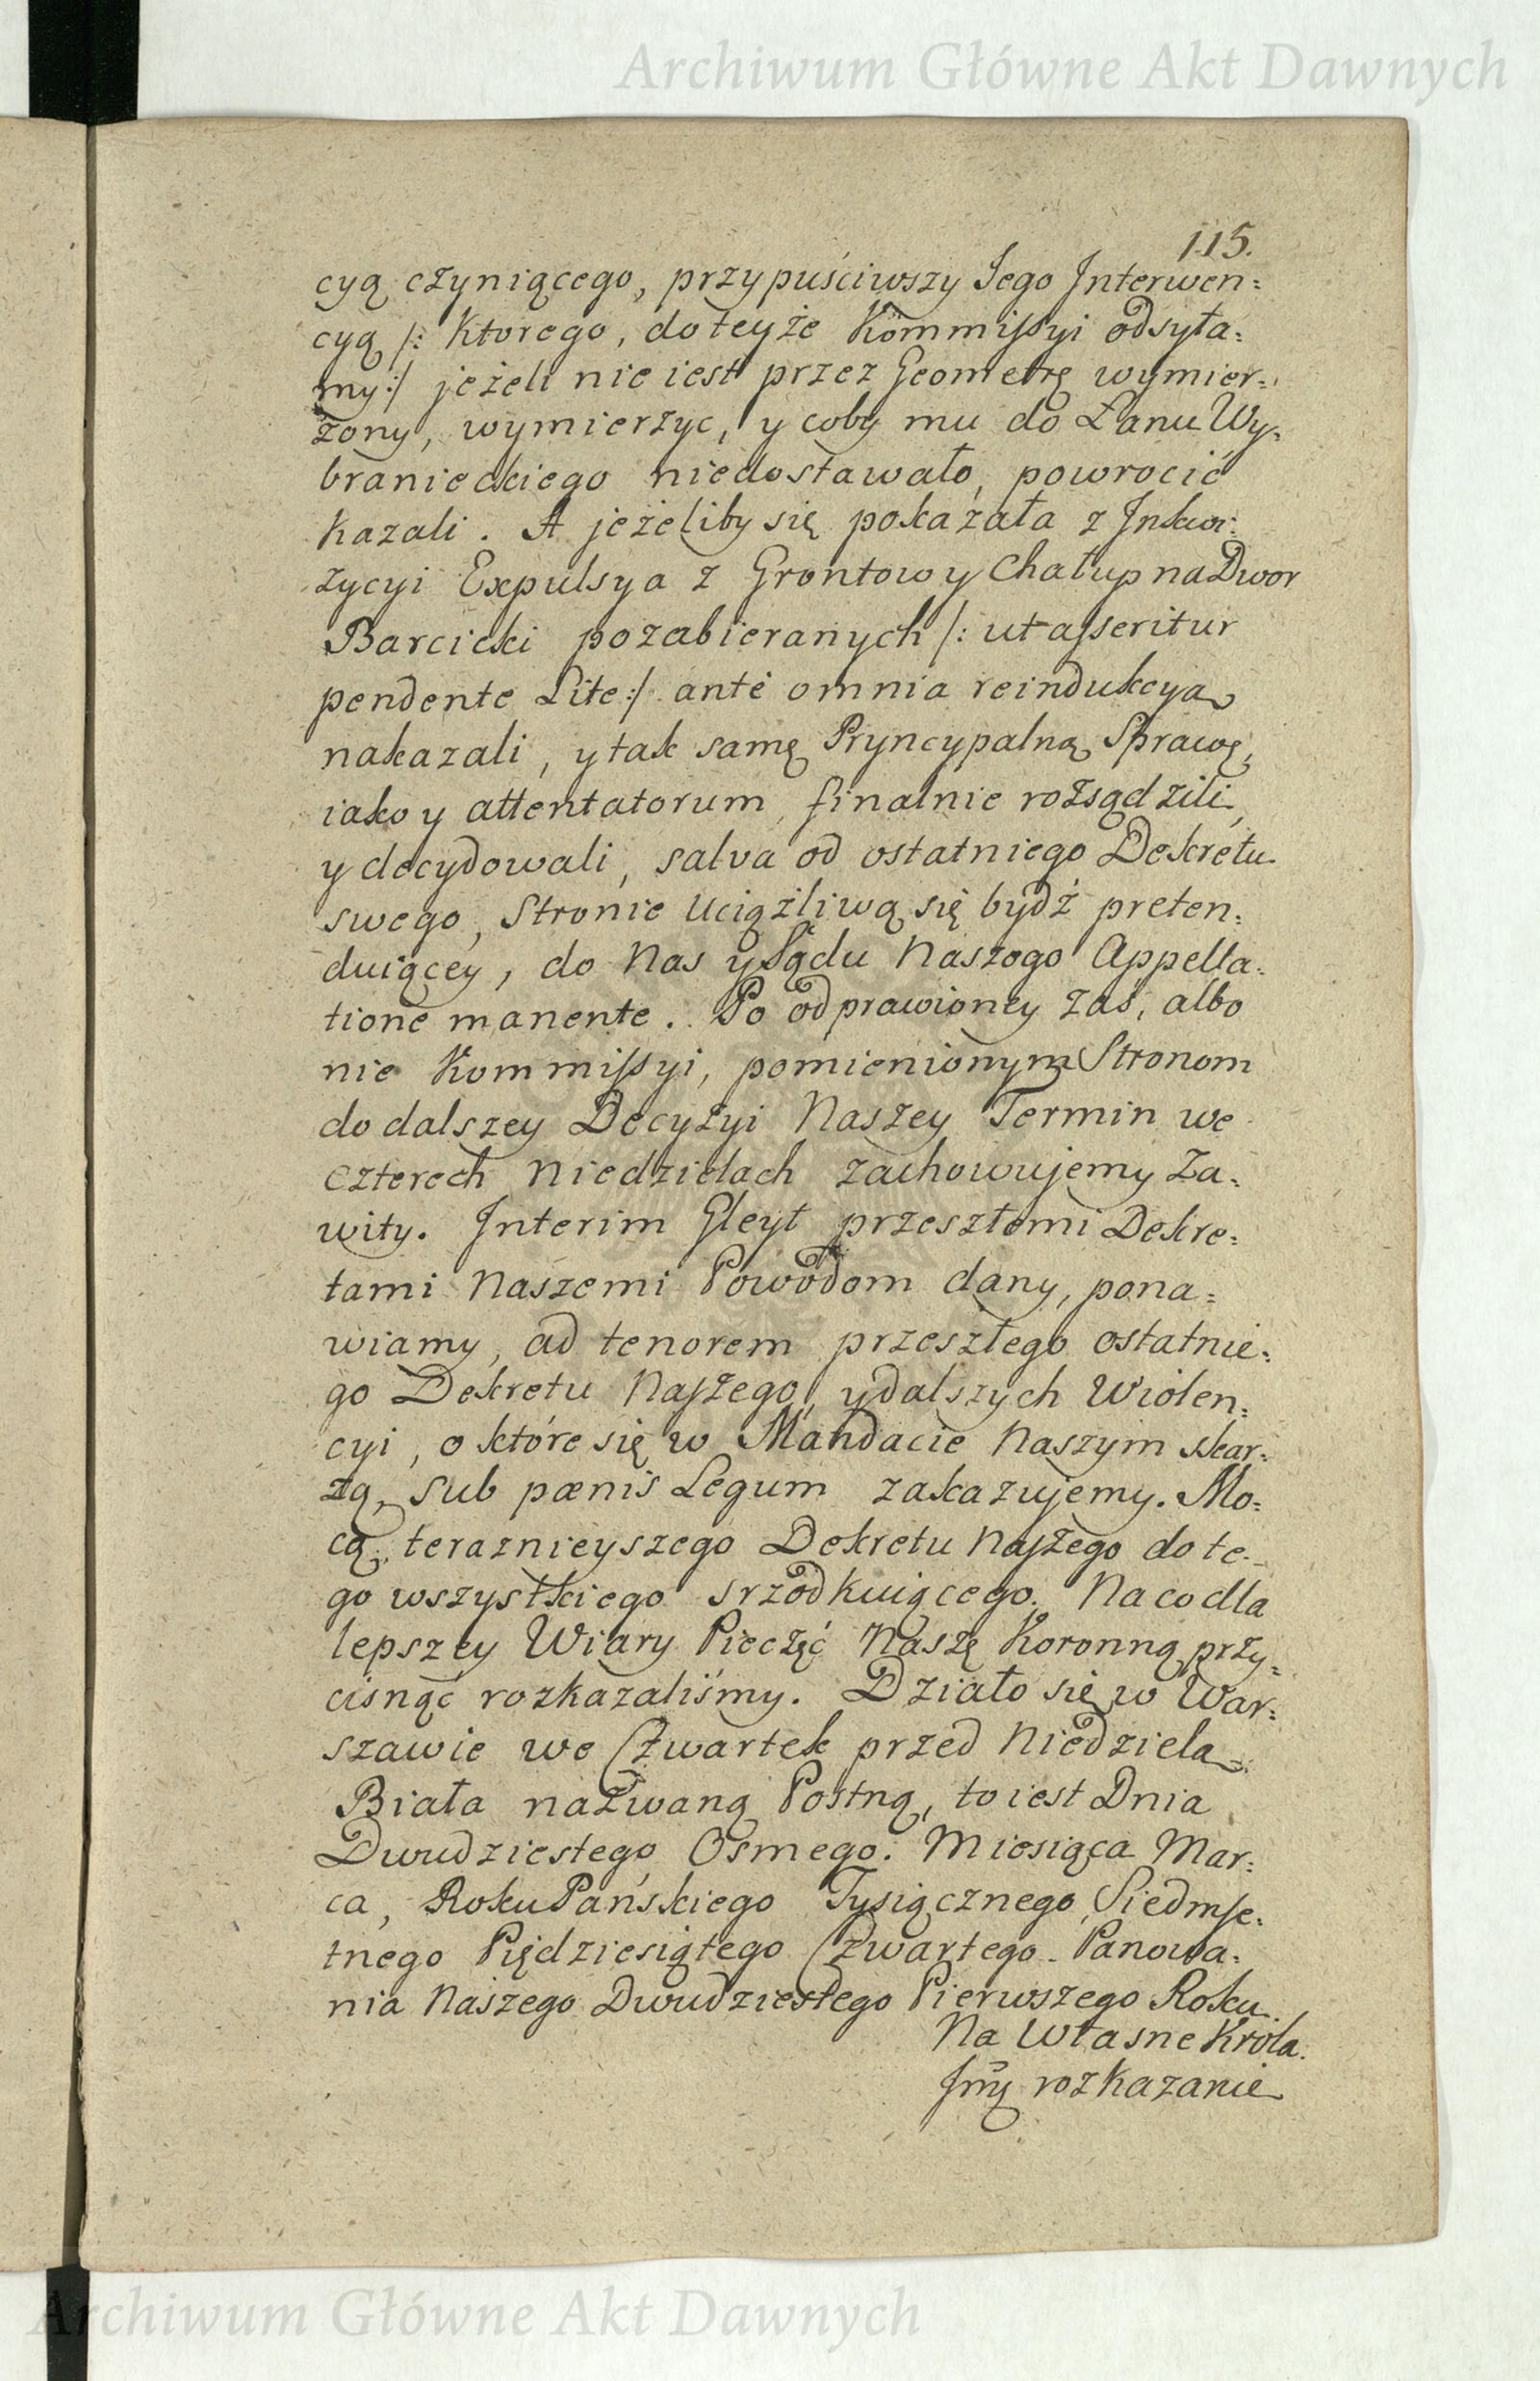 Archiwum Główne Akt Dawnych
115.
cyą czyniącego, przypuściwszy Jego Interwen:
cyą /: Ktorego, do teyże Kommissyi odsyła:
my:/ jeżeli nie iest przez Geometrę wymier:
żony, wymierzyc, y coby mu do Łanu Wy:
branieckiego niedostawało, powrocić
kazali. A jeżeliby się pokazała z Inkwi:
zycyi Expulsya z Grontow y Chałup na Dwor
Barcicki pozabieranych /: ut asseritur
pendente Lite:/ antè omnia reindukcya
nakazali, y tak samę Pryncypalną Sprawę,
iako y attentatorum, finalnie rozsądzili,
y decydowali, salva od ostatniego Dekretu
swego, Stronie Uciążliwą się bydź preten:
duiącey, do Nas y Sądu Naszogo Appella:
tione manente. Po odprawioney zaś, albo
nie Kommissyi, pomienionym Stronom
do dalszey Decyzyi Naszey Termin we
czterech Niedzielach zachowujemy Za:
wity. Interim Gleyt przeszłemi Dekre:
tami Naszemi Powodom dany, pona:
wiamy, ad tenorem przeszłego ostatnie:
go Dekretu Naszego, y dalszych Wiolen:
cyi, o które się w Mandacie Naszym skar:
żą, sub pœnis Legum zakazujemy. Mo:
cą teraznieyszego Dekretu Naszego do te:
go wszystkiego srzodkuiącego. Na co dla
lepszey Wiary Pieczęć Naszę Koronną przy:
cisnąć rozkazaliśmy. Działo się w War:
szawie we Czwartek przed Niedziela
Biała nazwaną Postną, to iest Dnia
Dwudziestego Osmego. Miesiąca Mar:
ca, Roku Pańskiego Tysiącznego Siedmse:
tnego Piędziesiątego Czwartego. Panowa:
nia Naszego Dwudziestego Pierwszego Roku.
Na Własne Króla
Jm̃ rozkazanie
Archiwum Główne Akt Dawnych